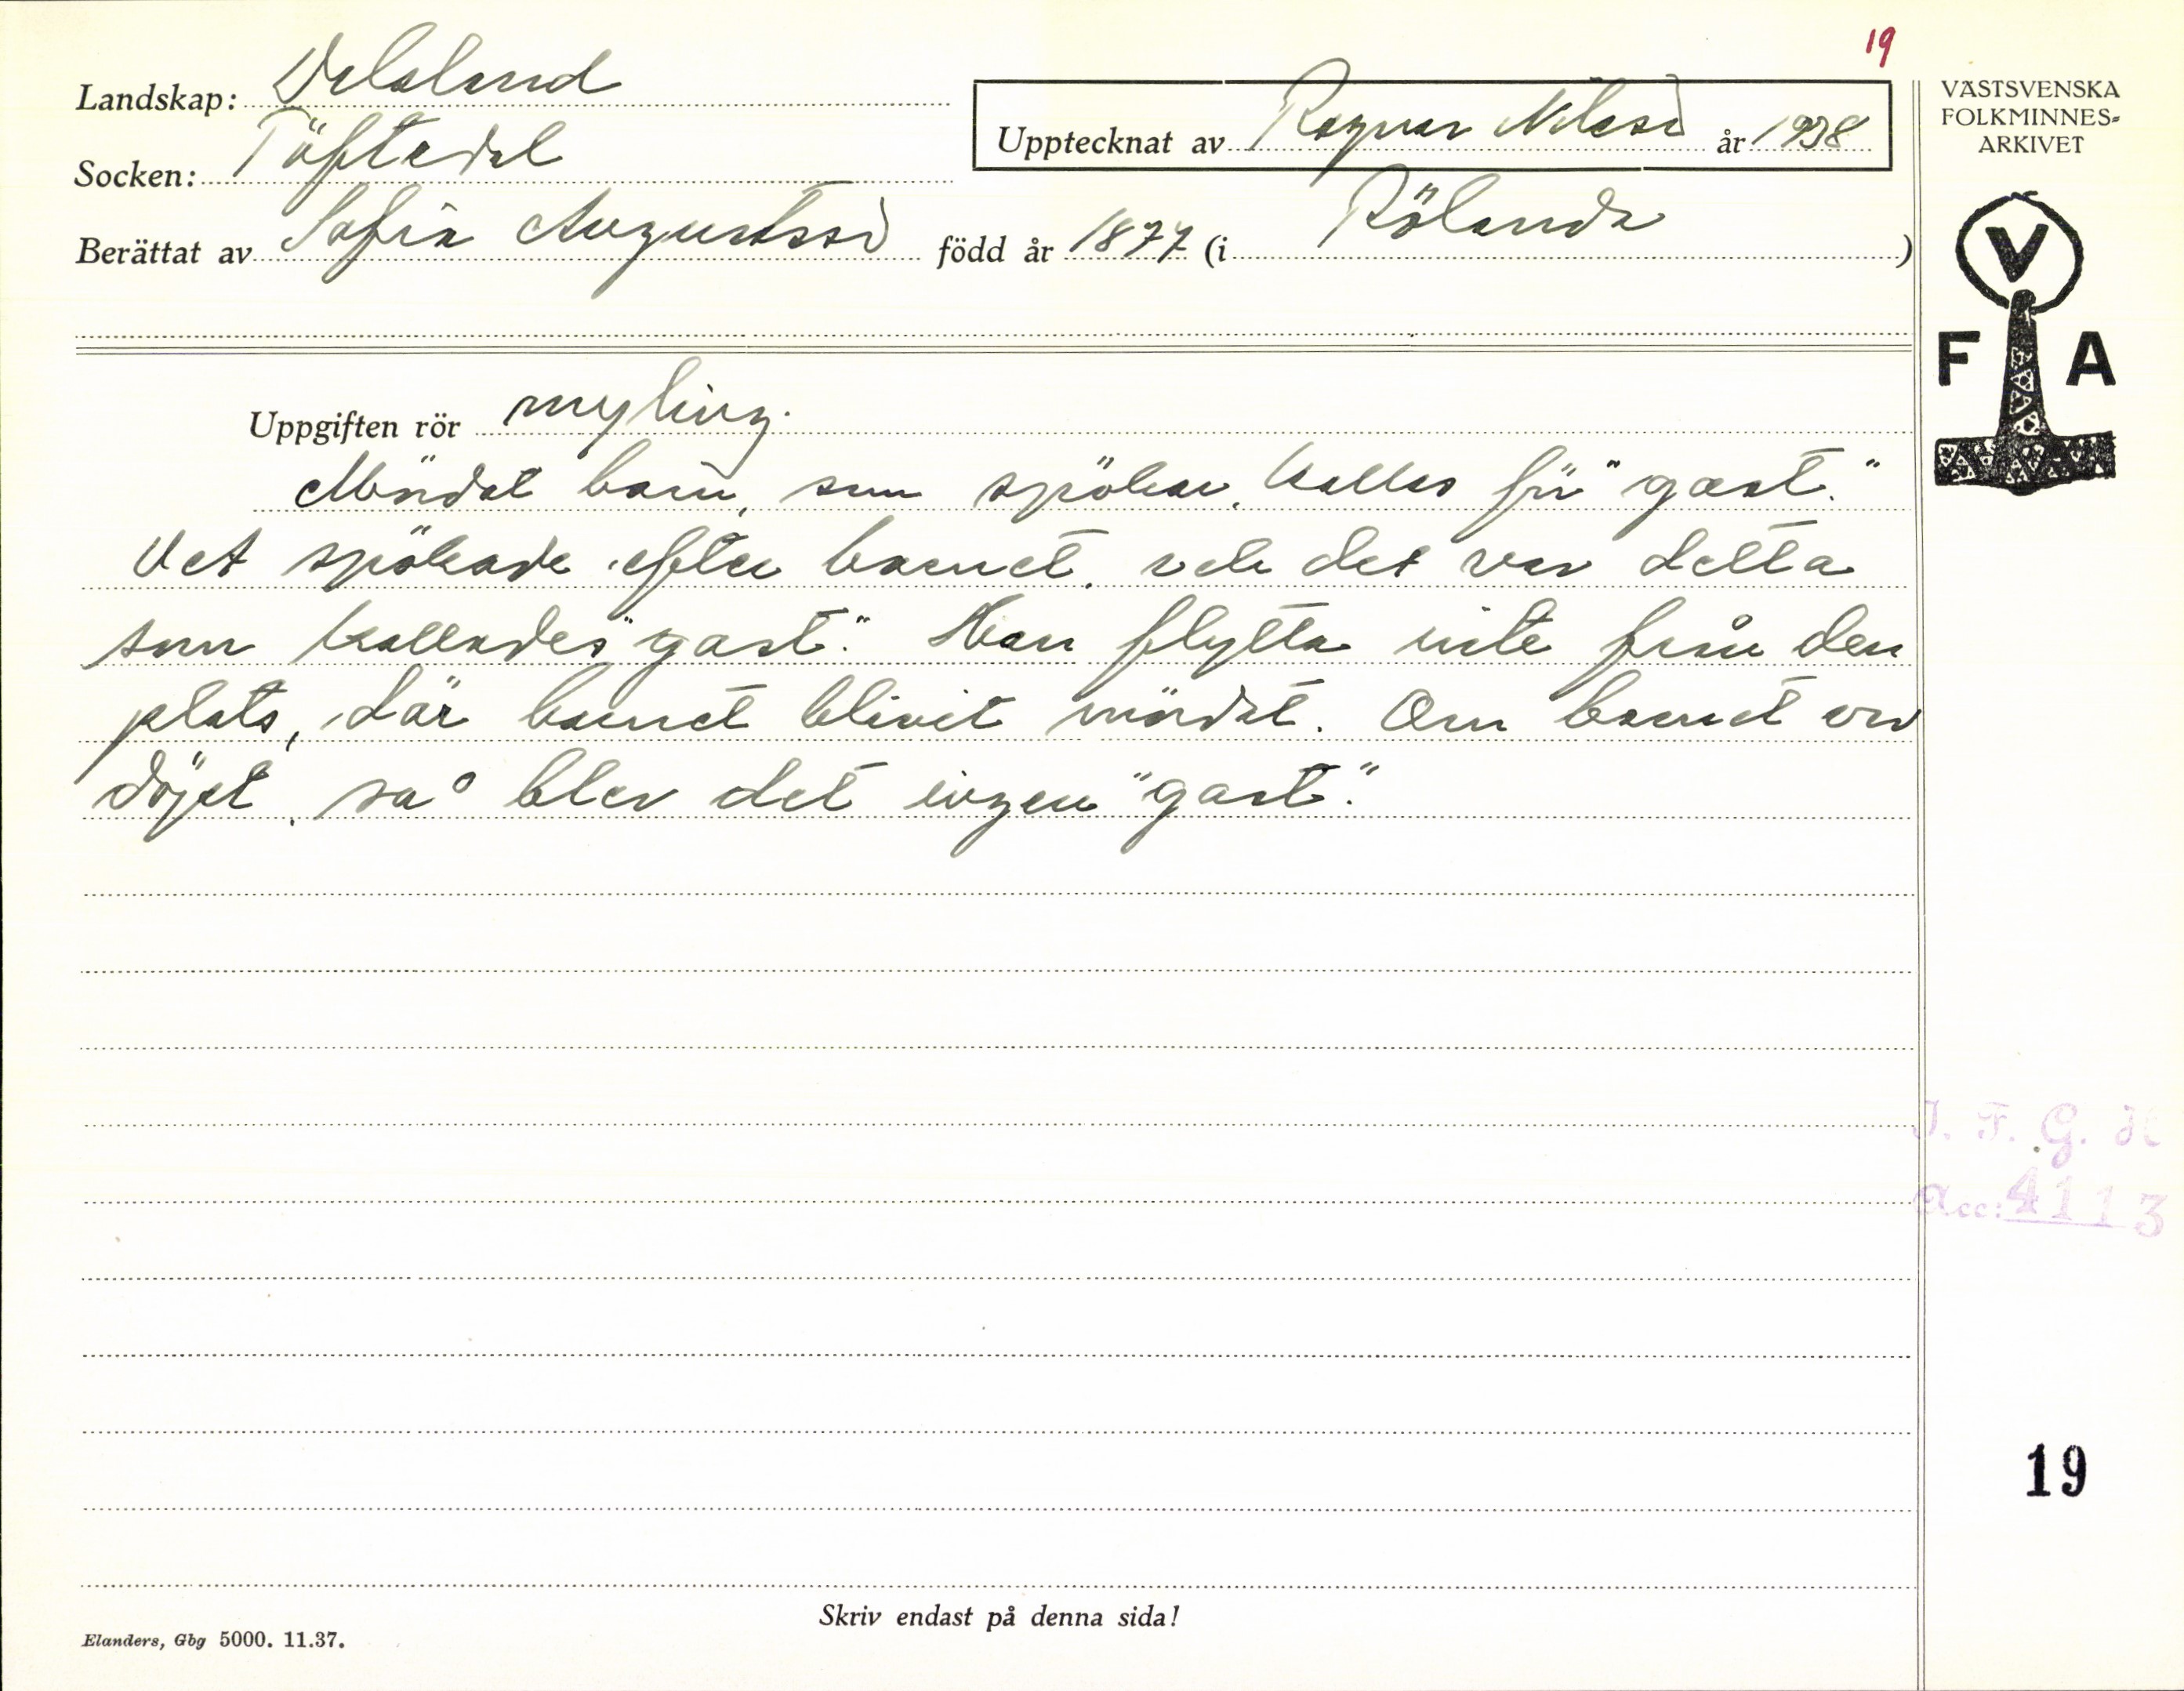 19
Landskap: Dalsland
Upptecknat av Ragnar Nilsson år 1938
Socken: Töftedal
Berättat av Sofia Augustsson född år 1877 (i Rölanda)
VÄSTSVENSKA
FOLKMINNES-
ARKIVET
V
F A
Uppgiften rör myling.
Mördat barn, som spökar, kallas för "gast."
Det spökade efter barnet, och det var detta
som kallades "gast." Han flytta inte från den
plats, där barnet blivit mördat. Om barnet var
döpt, så blev det ingen "gast."
I. F. G. H
Acc: 4113
19
Skriv endast på denna sida!
Elanders, Gbg 5000. 11.37.